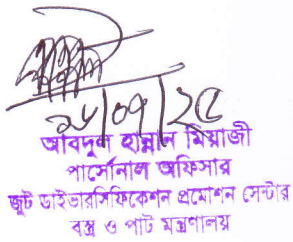 ২৮/০৭/২৫
আবদুল হান্নান মিয়াজী
পার্সোনাল অফিসার
জুট ডাইভারসিফিকেশন প্রমোশন সেন্টার
বস্ত্র ও পাট মন্ত্রণালয়